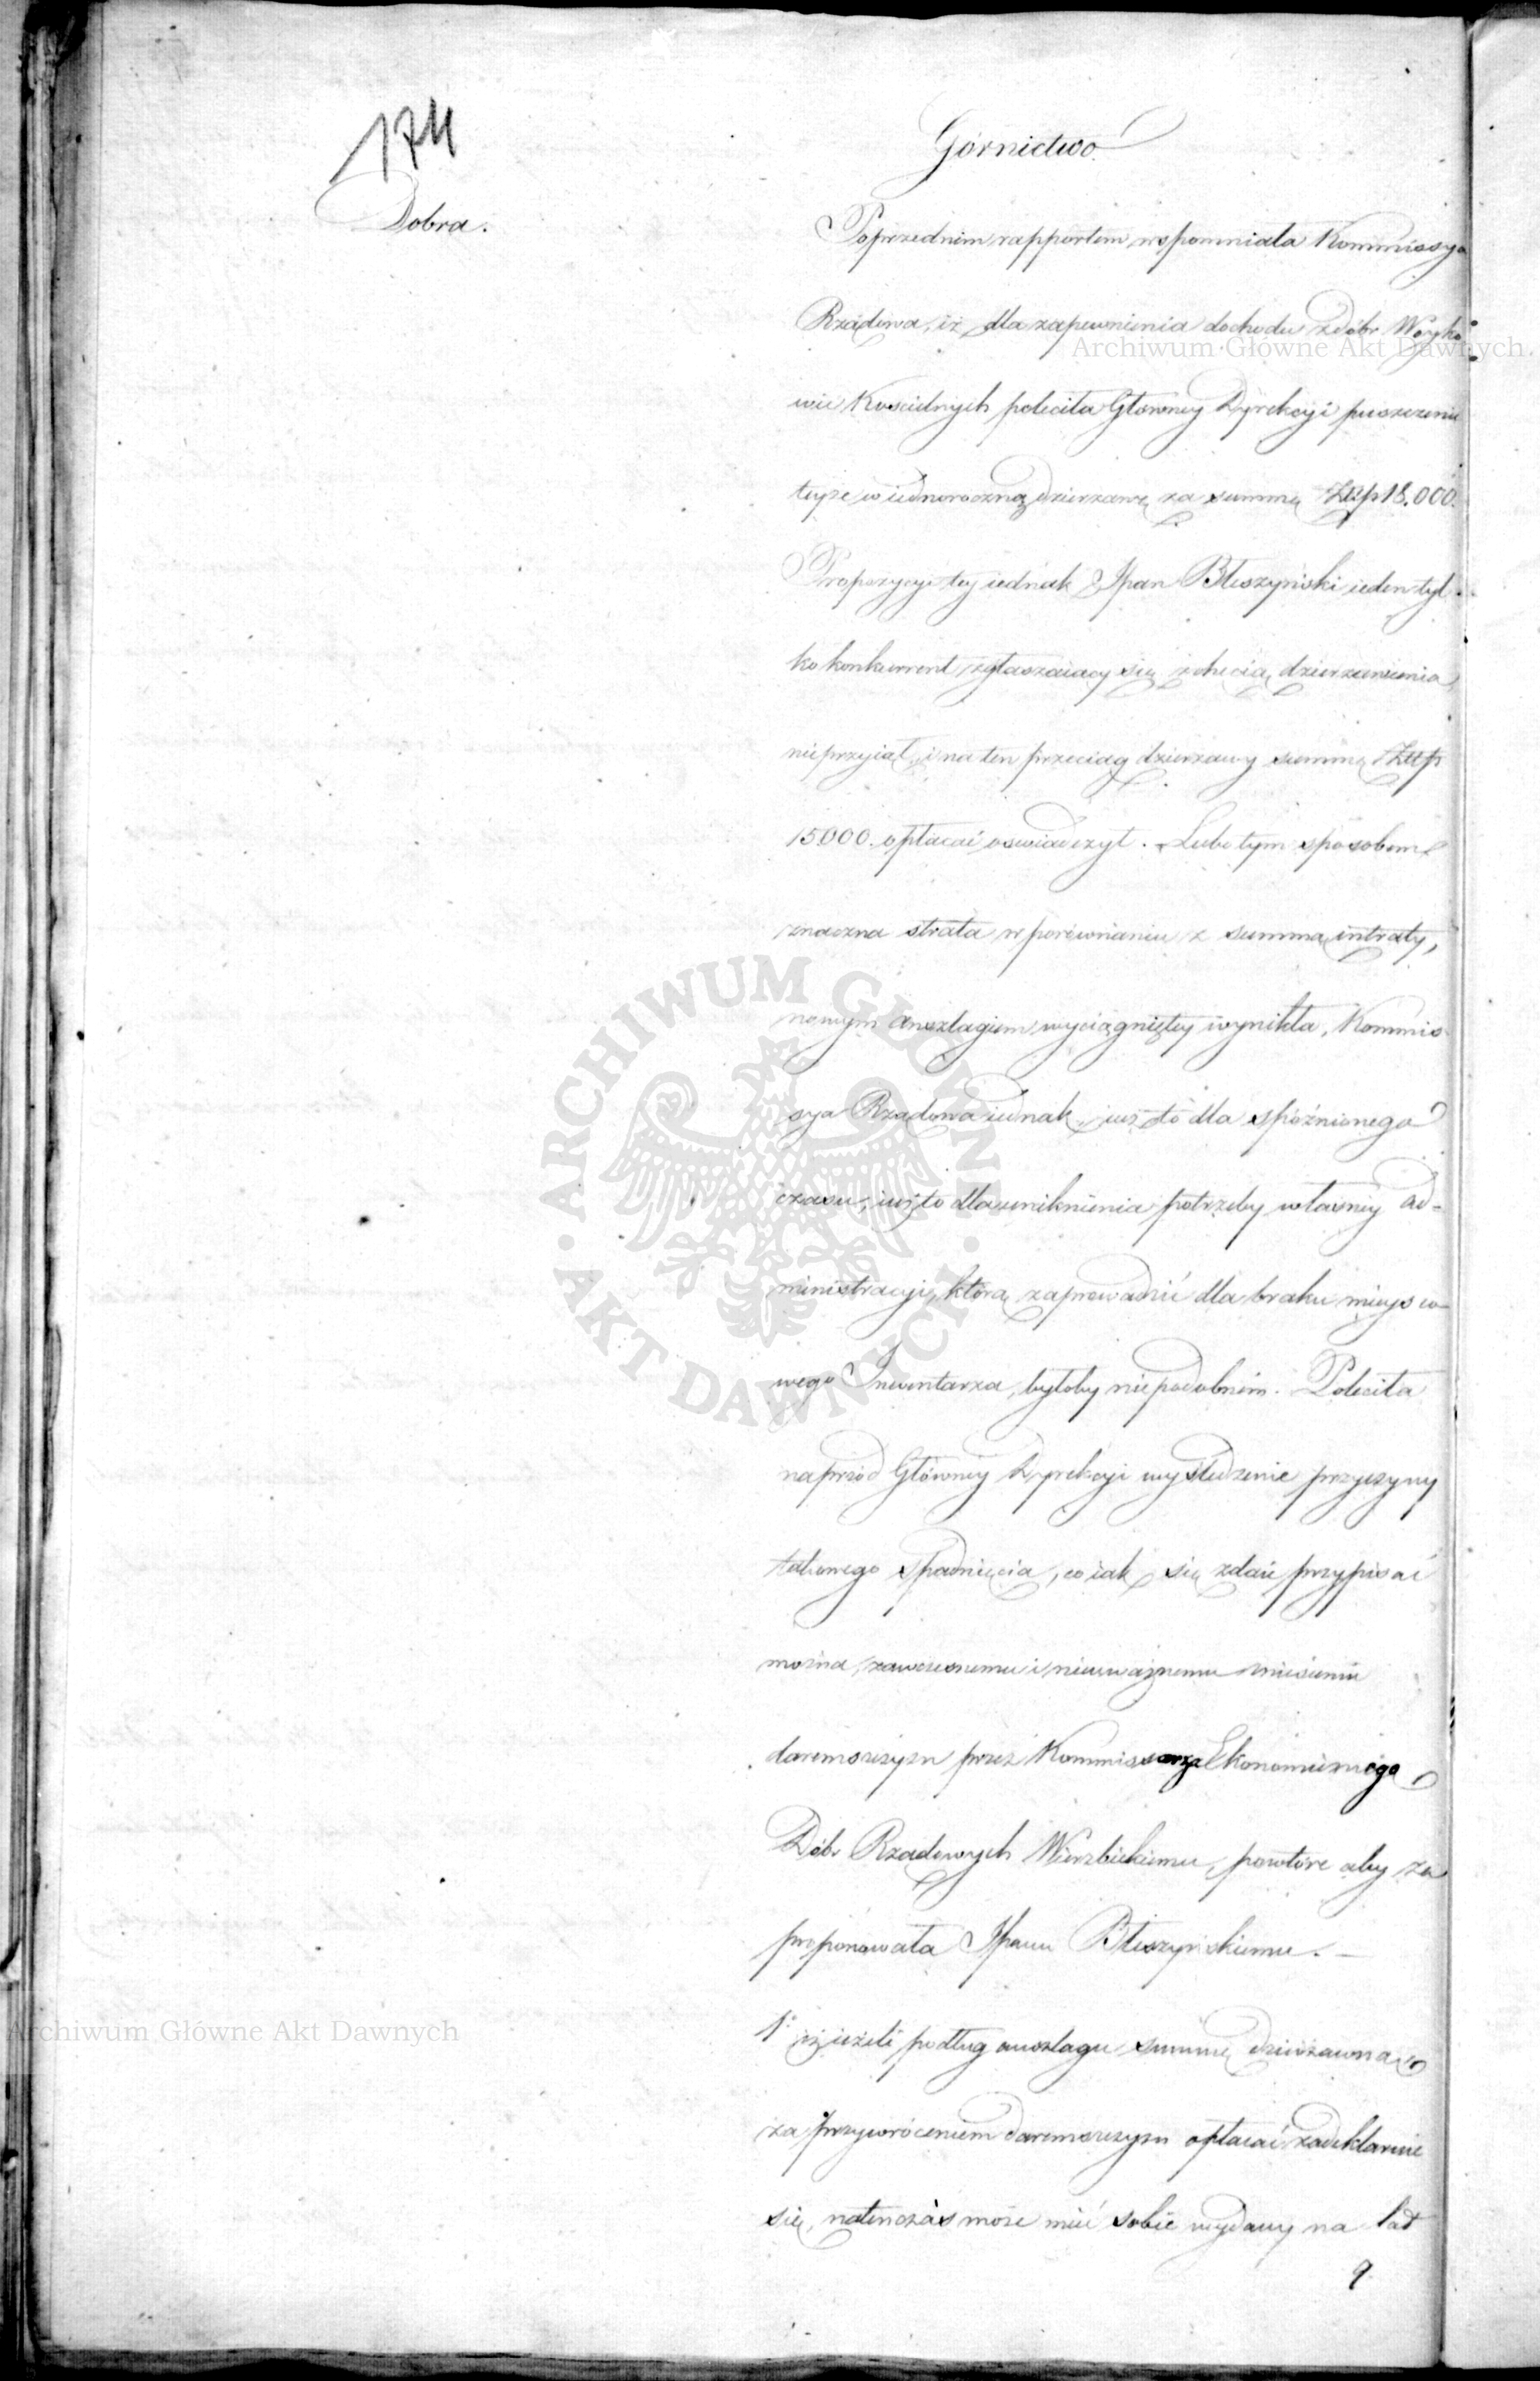 174
Dobra.
Górnictwo
Poprzednim rapportem wspomniała Kommissya
Rządowa, iż dla zapewnienia dochodu z dóbr
wie Kościelnych poleciła Główney Dyrekcyi puszczenie
tychże w iednoroczną dzierzawę za summę Złp 18.000.
Propozycyi tey iednak JPan Bleszyński ieden tyl-
ko konkurrent zgłaszaiący się z chęcią dzierzawienia
nieprzyiął, i na ten przeciąg dzierzawy summę Złtp
15000. opłacać oswiadczył. Lubo tym sposobem
znaczna strata w porównaniu z summą intraty,
nowym anszlagiem wyciągniętey wynikła, Kommis-
sya Rządowa iednak, iuż to dla spóźnionego
czasu, iuż to dla uniknienia potrzeby własney ad-
ministracyi, którą zaprowadzić dla braku mieysco-
wego Inwentarza, byłoby niepodobnem. Poleciła
naprzód Główney Dyrekcyi wyśledzenie przyczyny
takowego spadnięcia, co iak się zdaie przypisać
można, zawczesnemu i nieuważnemu zniesieniu
daremszczyzn przez Kommissarza Ekonomicznego
Dóbr Rządowych Wierzbickiemu, powtóre aby za
proponowała JPanu Bleszyńskiemu. —
1° iż ieżeli podług anszlagu summę dzierżawną
za przywróceniem daremszczyzn opłacać zadeklaruie
się, natenczas może mieć sobie wydany na lat
9
Archiwum Główne Akt Dawnych
ARCHIWUM GŁÓWNE
AKT DAWNYCH
Archiwum Główne Akt Dawnych